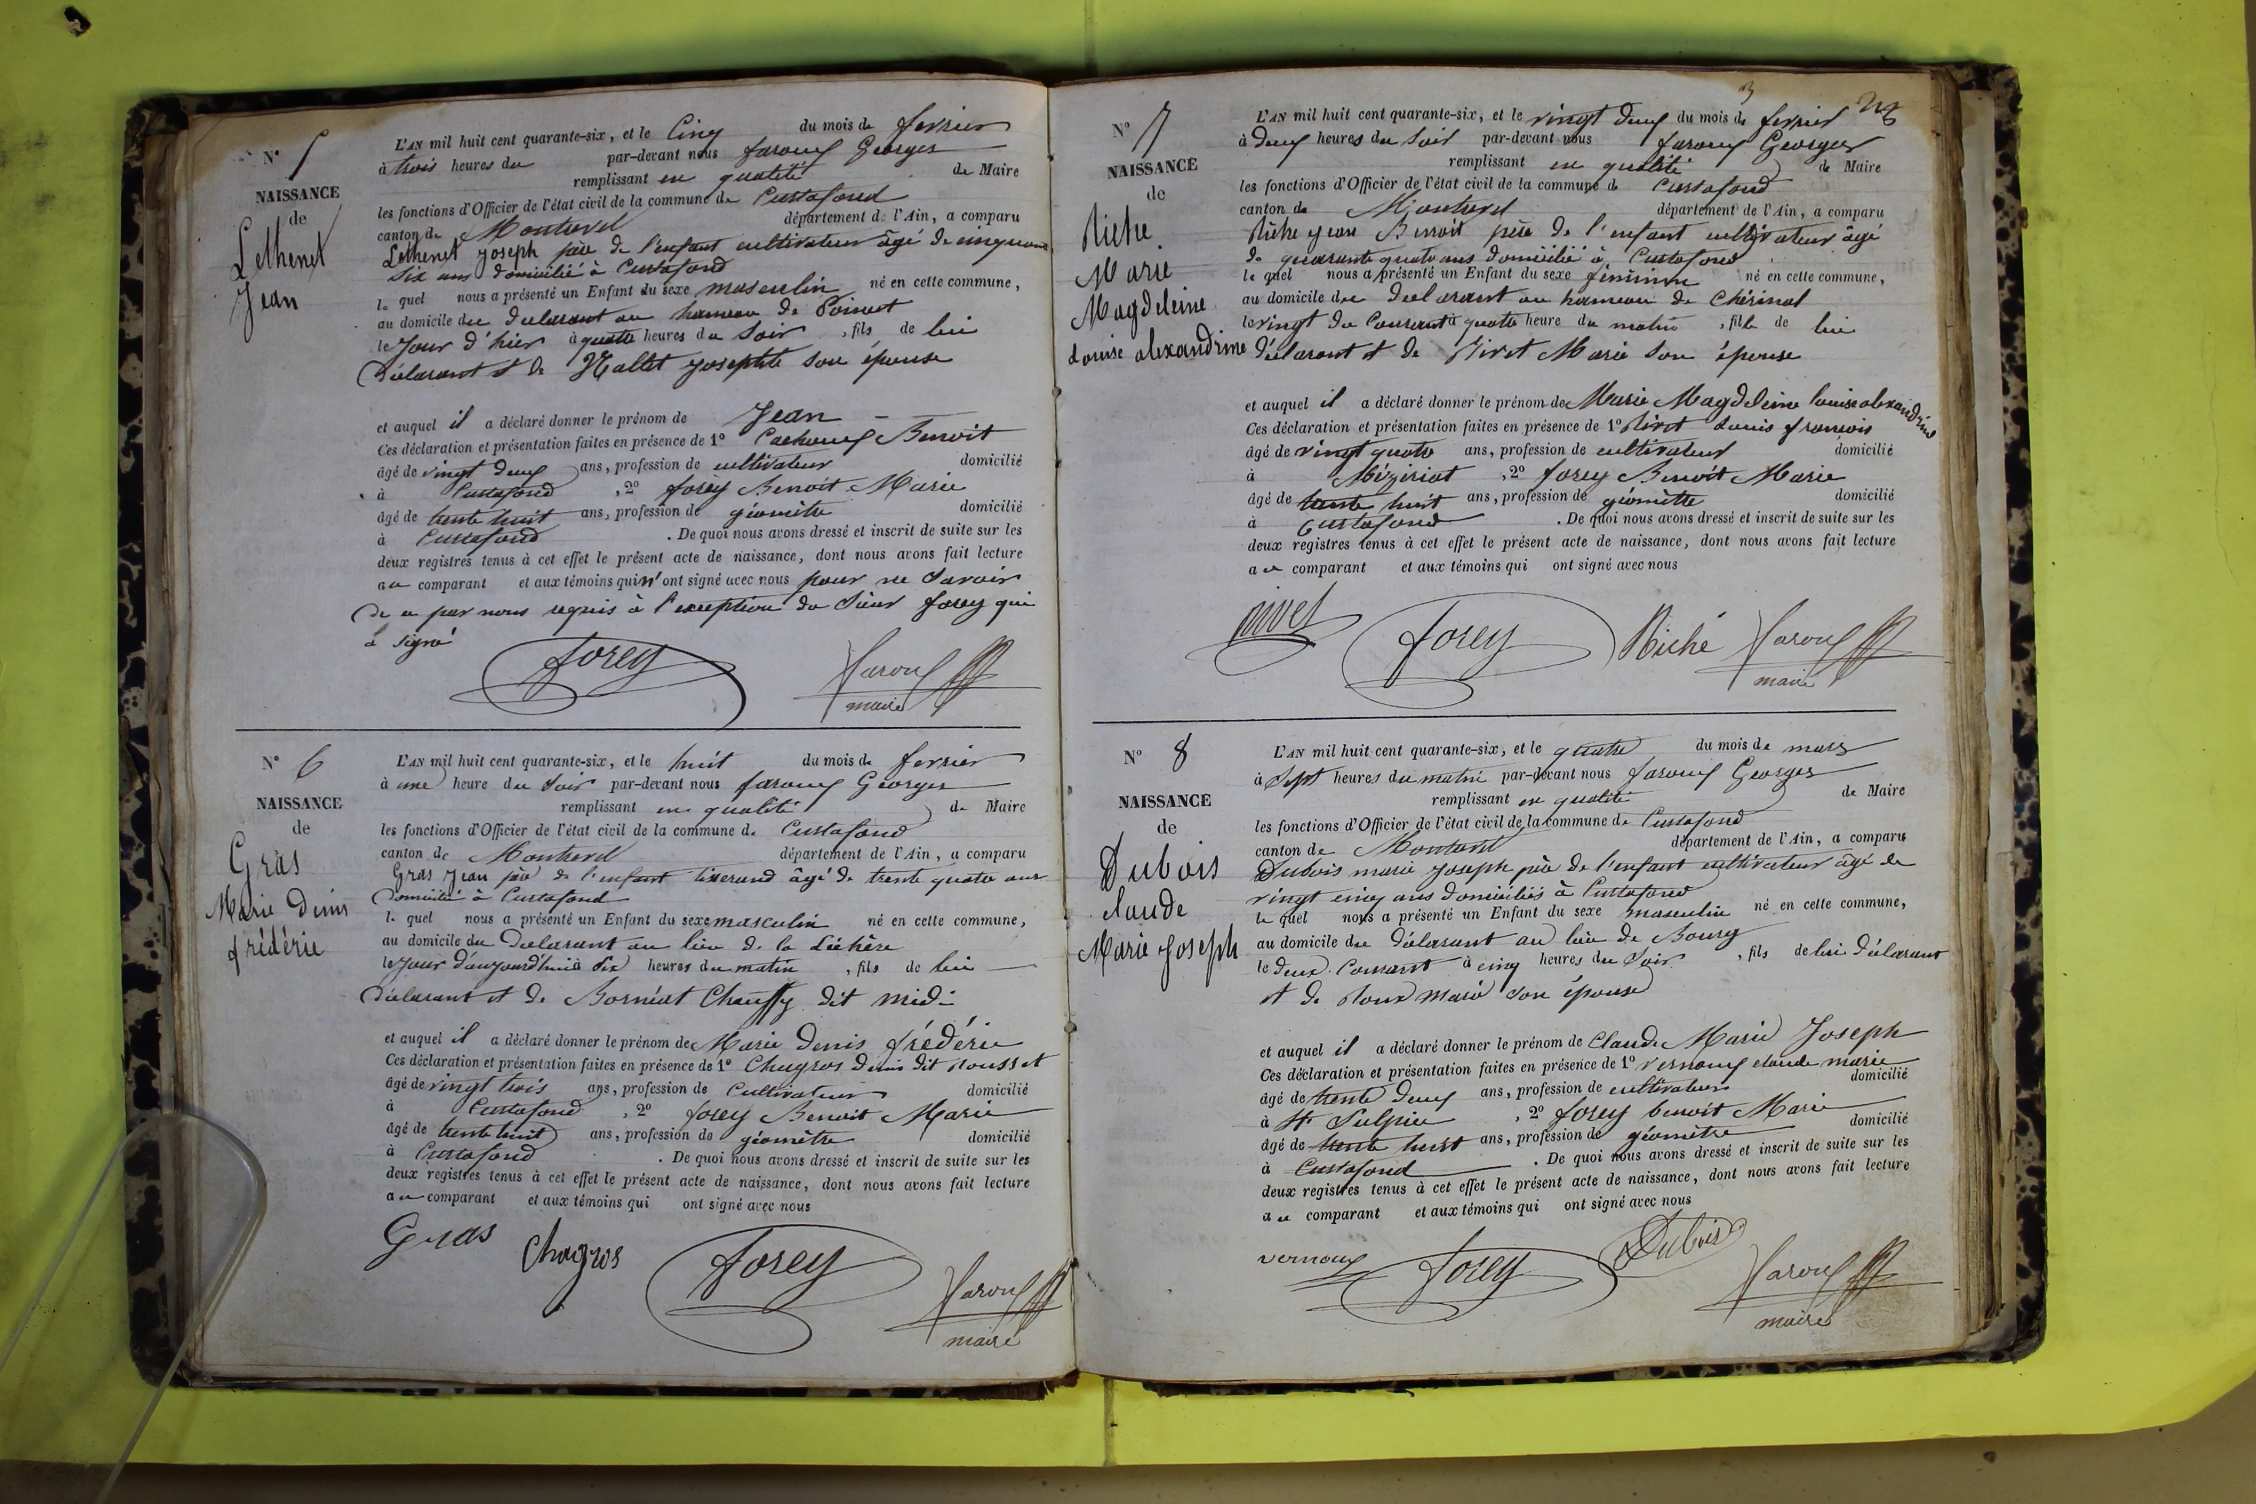 N° 5
NAISSANCE
de
Lethenet
Jean
L'AN mil huit cent quarante-six, et le Cinq du mois de fevrier
à trois heures du par-devant nous faroux Georges
remplissant en qualité de Maire
les fonctions d'Officier de l'état civil de la commune de Curtafond
canton de Montrevel département de l'Ain, a comparu
Lethenet Joseph père de l'enfant cultivateur âgé de cinquante
six ans domicilié à Curtafond
le quel nous a présenté un Enfant du sexe masculin né en cette commune,
au domicile du declarant au hameau de
le jour d'hier à quatre heures du soir , fils de lui
déclarant et de Josephte son épouse
et auquel il a déclaré donner le prénom de Jean
Ces déclaration et présentation faites en présence de 1° Benoit
âgé de vingt deux ans, profession de cultivateur domicilié
à Curtafond , 2° forey Benoit Marie
âgé de trente huit ans, profession de géomètre domicilié
à Curtafond . De quoi nous avons dressé et inscrit de suite sur les
deux registres tenus à cet effet le présent acte de naissance, dont nous avons fait lecture
au comparant et aux témoins qui n'ont signé avec nous pour ne savoir
de ce par nous requis à l'exception du sieur forey qui
a signé
forey
faroux
maire
N° 6
NAISSANCE
de
Gras
Marie Denis
frédéric
L'AN mil huit cent quarante-six, et le huit du mois de fevrier
à une heure du soir par-devant nous faroux Georges
remplissant en qualité de Maire
les fonctions d'Officier de l'état civil de la commune de Curtafond
canton de Montrevel département de l'Ain, a comparu
Gras Jean père de l'enfant tisserand âgé de trente quatre ans
domicilié à Curtafond
le quel nous a présenté un Enfant du sexe masculin né en cette commune,
au domicile du declarant au lieu de la
le jour d'aujourd'hui à six heures du matin , fils de lui
déclarant et de Chauffy dit midi
et auquel il a déclaré donner le prénom de Marie Denis frédéric
Ces déclaration et présentation faites en présence de 1° Chagros Denis dit rousset
âgé de vingt trois ans, profession de cultivateur domicilié
à Curtafond , 2° forey Benoit Marie
âgé de trente huit ans, profession de géomètre domicilié
à Curtafond . De quoi nous avons dressé et inscrit de suite sur les
deux registres tenus à cet effet le présent acte de naissance, dont nous avons fait lecture
au comparant et aux témoins qui ont signé avec nous
Gras Chagros forey
faroux
maire
3
N° 7
NAISSANCE
de
Riche
Marie
Magdeleine
Louise alexandrine
L'AN mil huit cent quarante-six, et le vingt deux du mois de fevrier
à deux heures du soir par-devant nous faroux Georges
remplissant en qualité de Maire
les fonctions d'Officier de l'état civil de la commune de Curtafond
canton de Montrevel département de l'Ain, a comparu
Riche Jean Benoit père de l'enfant cultivateur âgé
de quarante quatre ans domicilié à Curtafond
le quel nous a présenté un Enfant du sexe féminin né en cette commune,
au domicile du declarant au hameau de Chérinal
le vingt du courant à quatre heure du matin , fille de lui
déclarant et de Rivet Marie son épouse
et auquel il a déclaré donner le prénom de Marie Magdeleine louise alexandrine
Ces déclaration et présentation faites en présence de 1° Rivet Louis françois
âgé de vingt quatre ans, profession de cultivateur domicilié
à Méziriat , 2° forey Benoit Marie
âgé de trente huit ans, profession de géomètre domicilié
à Curtafond . De quoi nous avons dressé et inscrit de suite sur les
deux registres tenus à cet effet le présent acte de naissance, dont nous avons fait lecture
au comparant et aux témoins qui ont signé avec nous
rivet forey Riché faroux
maire
N° 8
NAISSANCE
de
Dubois
claude
Marie Joseph
L'AN mil huit cent quarante-six, et le quatre du mois de mars
à sept heures du matin par-devant nous faroux Georges
remplissant en qualité de Maire
les fonctions d'Officier de l'état civil de la commune de Curtafond
canton de Montrevel département de l'Ain, a comparu
Dubois marie Joseph père de l'enfant cultivateur âgé de
vingt cinq ans domiciliés à Curtafond
le quel nous a présenté un Enfant du sexe masculin né en cette commune,
au domicile du déclarant au lieu de Bourg
le deux courant à cinq heures du soir , fils de lui déclarant
et de Roux marie son épouse
et auquel il a déclaré donner le prénom de Claude Marie Joseph
Ces déclaration et présentation faites en présence de 1° vernoux claude marie
âgé de trente deux ans, profession de cultivateur domicilié
à St Sulpice , 2° forey benoit Marie
âgé de trente huit ans, profession de géomètre domicilié
à Curtafond . De quoi nous avons dressé et inscrit de suite sur les
deux registres tenus à cet effet le présent acte de naissance, dont nous avons fait lecture
au comparant et aux témoins qui ont signé avec nous
vernoux forey Dubois faroux
maire